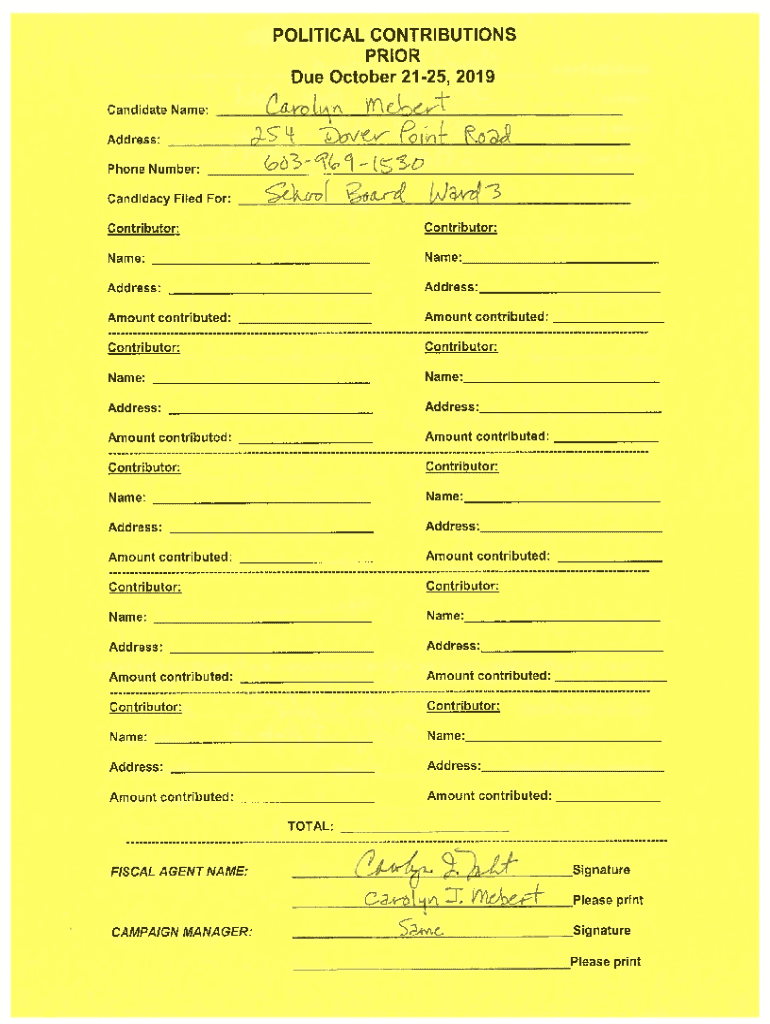 POLITICAL CONTRIBUTIONS
PRIOR
Due October 21-25, 2019
Candidate Name: Carolyn Mebert
Address: 254 Dover Point Road
Phone Number: 603-969-1530
Candidacy Filed For: School Board Ward 3
Contributor: Contributor:
Name: Name:
Address: Address:
Amount contributed: Amount contributed:
Contributor: Contributor:
Name: Name:
Address: Address:
Amount contributed: Amount contributed:
Contributor: Contributor:
Name: Name:
Address: Address:
Amount contributed: Amount contributed:
Contributor: Contributor:
Name: Name:
Address: Address:
Amount contributed: Amount contributed:
Contributor: Contributor:
Name: Name:
Address: Address:
Amount contributed: Amount contributed:
TOTAL:
FISCAL AGENT NAME: Carolyn J. Signature
Carolyn J. Mebert Please print
CAMPAIGN MANAGER: Same Signature
Please print